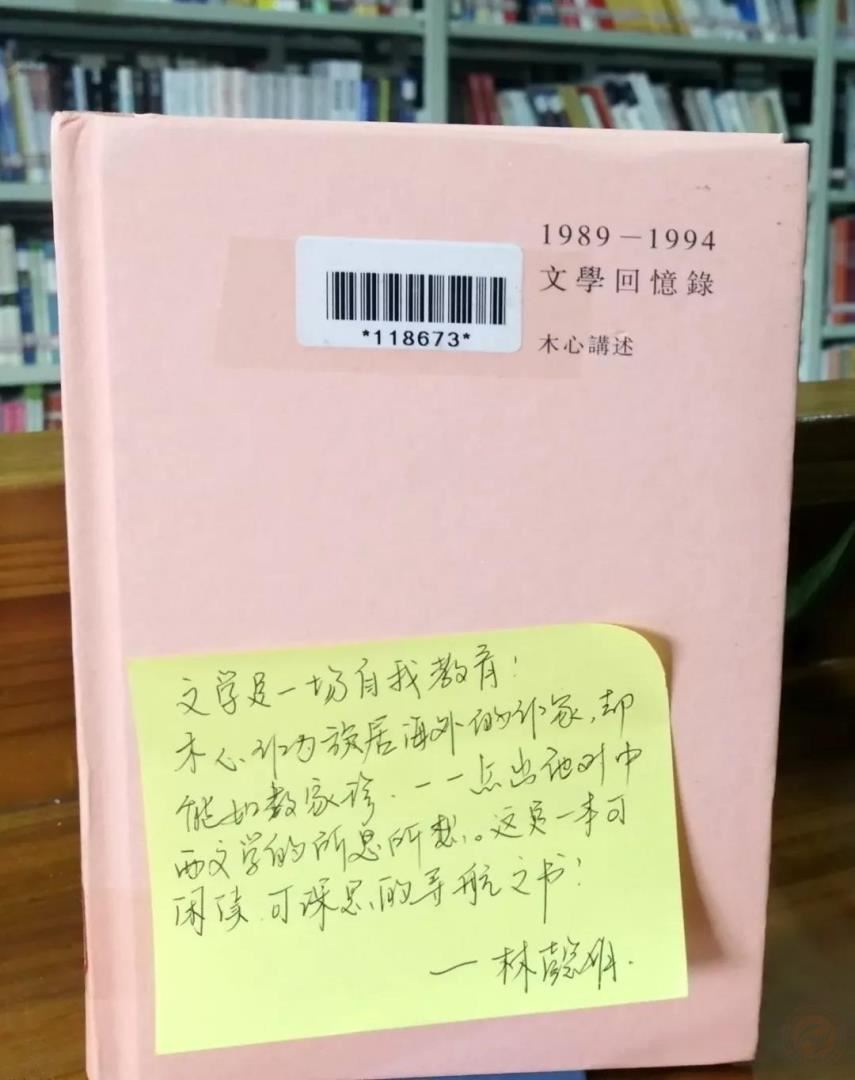 1989－1994
文學回憶錄
*118673*
木心講述
文学是一场自我教育！
木心作为旅居海外的作家，却
能如数家珍，一一点出他对中
西文学的所思所想。这是一本可
闲读、可深思的导航之书！
— 林